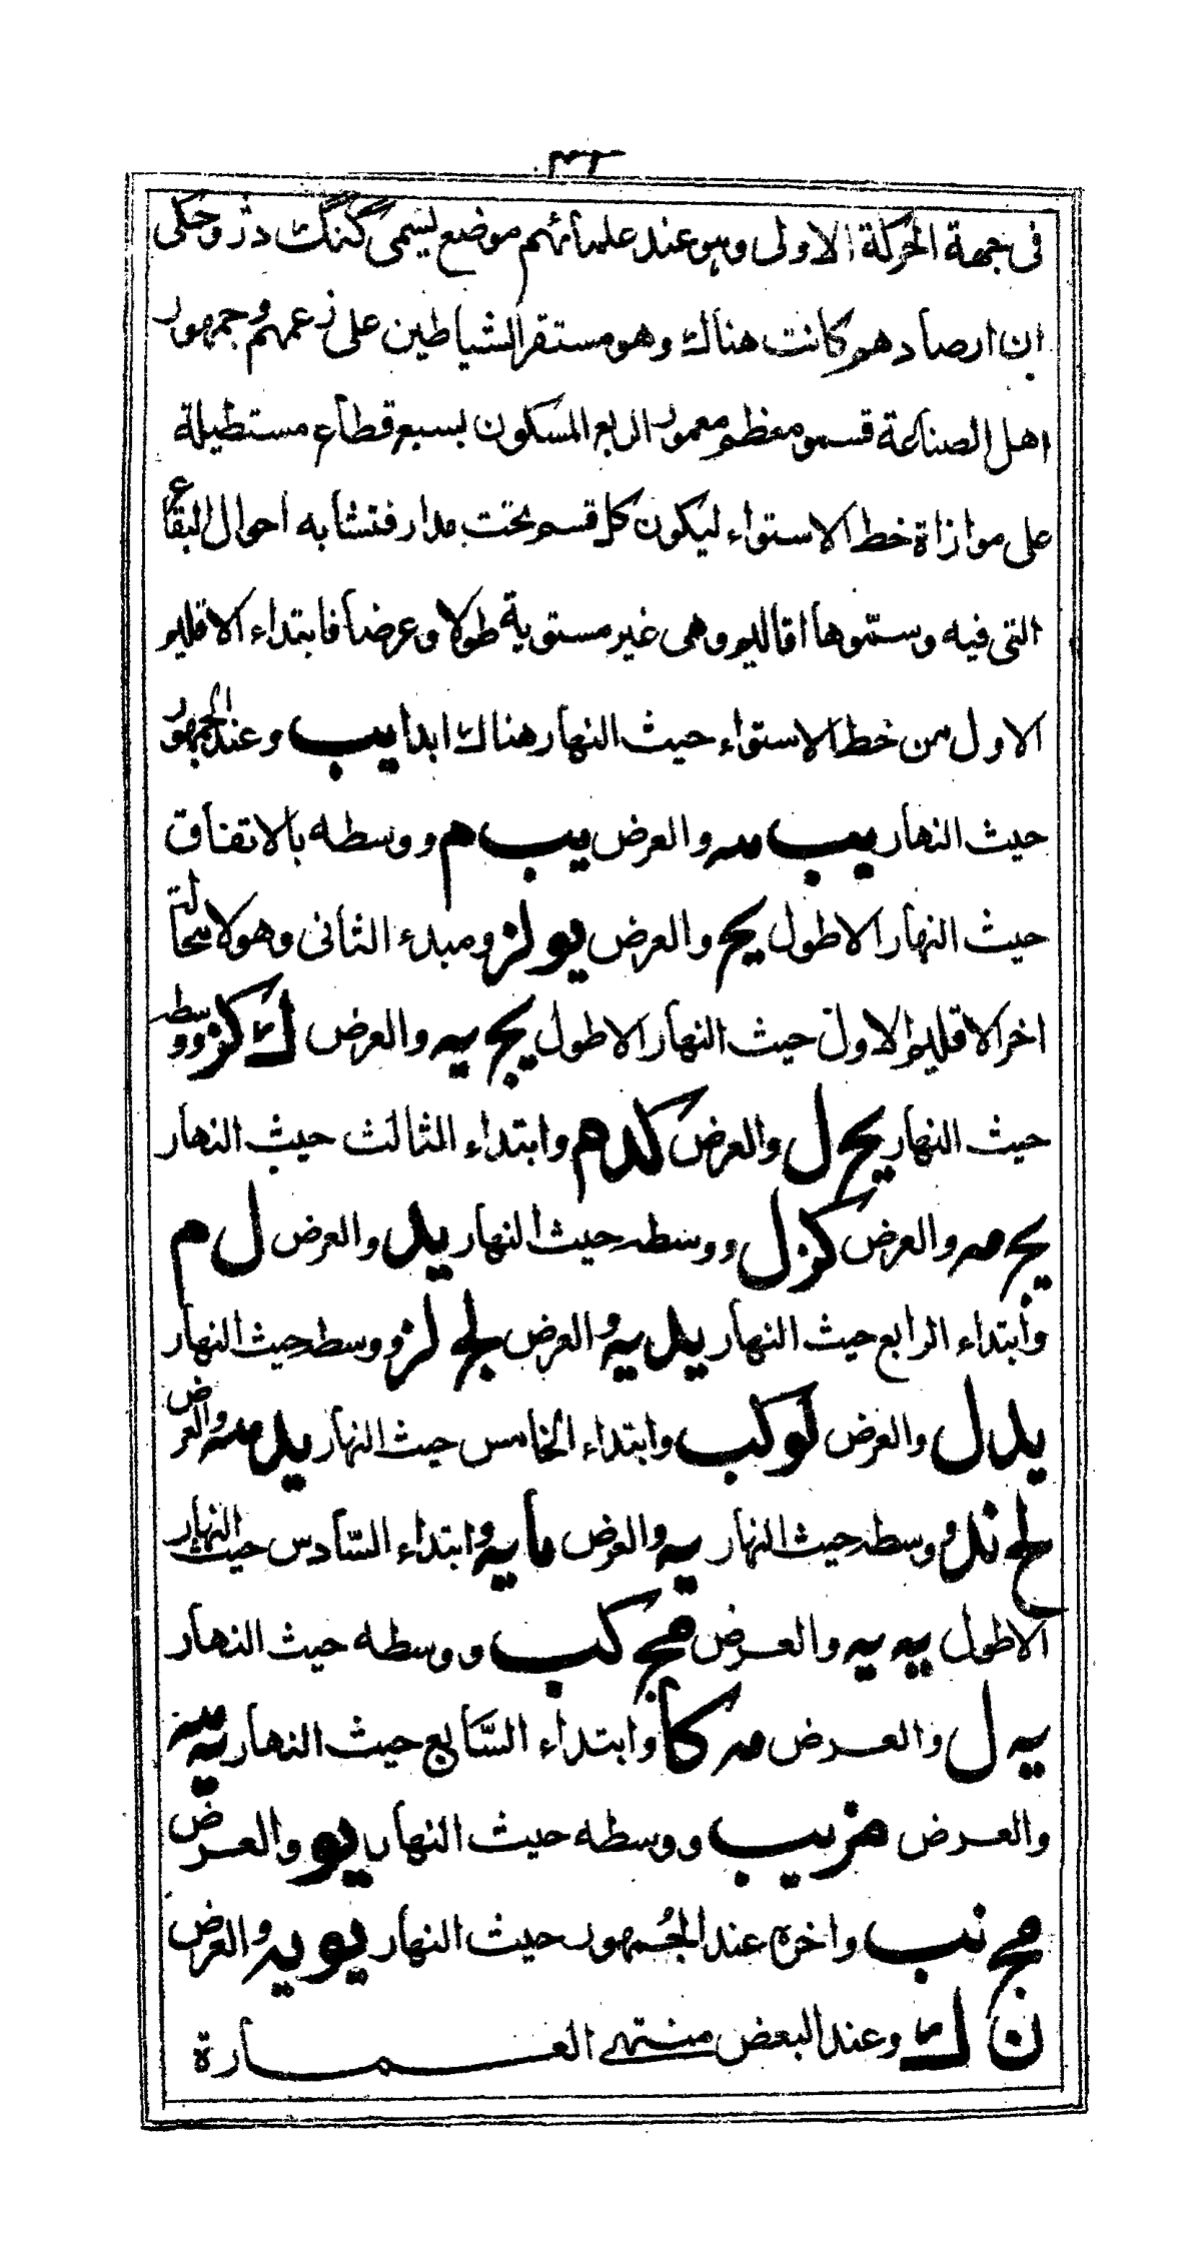 ٣٢
فى جهة الحركة الاولى وهو عند علمائهم موضع يسمى گنگ دژ وحكى
ان ارصادهم كانت هناك وهو مستقر الشياطين على زعمهم وجمهور
اهل الصناعة قسمو معظم معمور الربع المسكون بسبع قطاع مستطيلة
على موازاة خط الاستواء ليكون كل قسم تحت مدار فتشابه احوال البقاع
التى فيه وسمّوها اقاليم وهى غير مستوية طولا وعرضا فابتداء الاقليم
الاول من خط الاستواء حيث النهار هناك ابدا يب وعند الجمهور
حيث النهار يب مه والعرض يب م ووسطه بالاتفاق
حيث النهار الاطول يج والعرض يو لز ومبدء الثانى وهو لا محالة
اخر الاقليم الاول حيث النهار الاطول يج يه والعرض ك كز ووسطه
حيث النهار يج ل والعرض كد م وابتداء الثالث حيث النهار
يج مه والعرض كز ل ووسطه حيث النهار يد والعرض ل م
وابتداء الرابع حيث النهار يد يه والعرض لج لز ووسطه حيث النهار
يد ل والعرض لو كب وابتداء الخامس حيث النهار يد مه والعرض
لح ند ووسطه حيث النهار يه والعرض ما يه وابتداء السّادس حيث النهار
الاطول يه يه والعرض مج كب ووسطه حيث النهار
يه ل والعرض مه كا وابتداء السّابع حيث النهار يه مه
والعرض مز يب ووسطه حيث النهار يو والعرض
مح نب واخره عند الجُمهور حيث النهار يو يه والعرض
ن ك وعند البعض منتهى العمارة